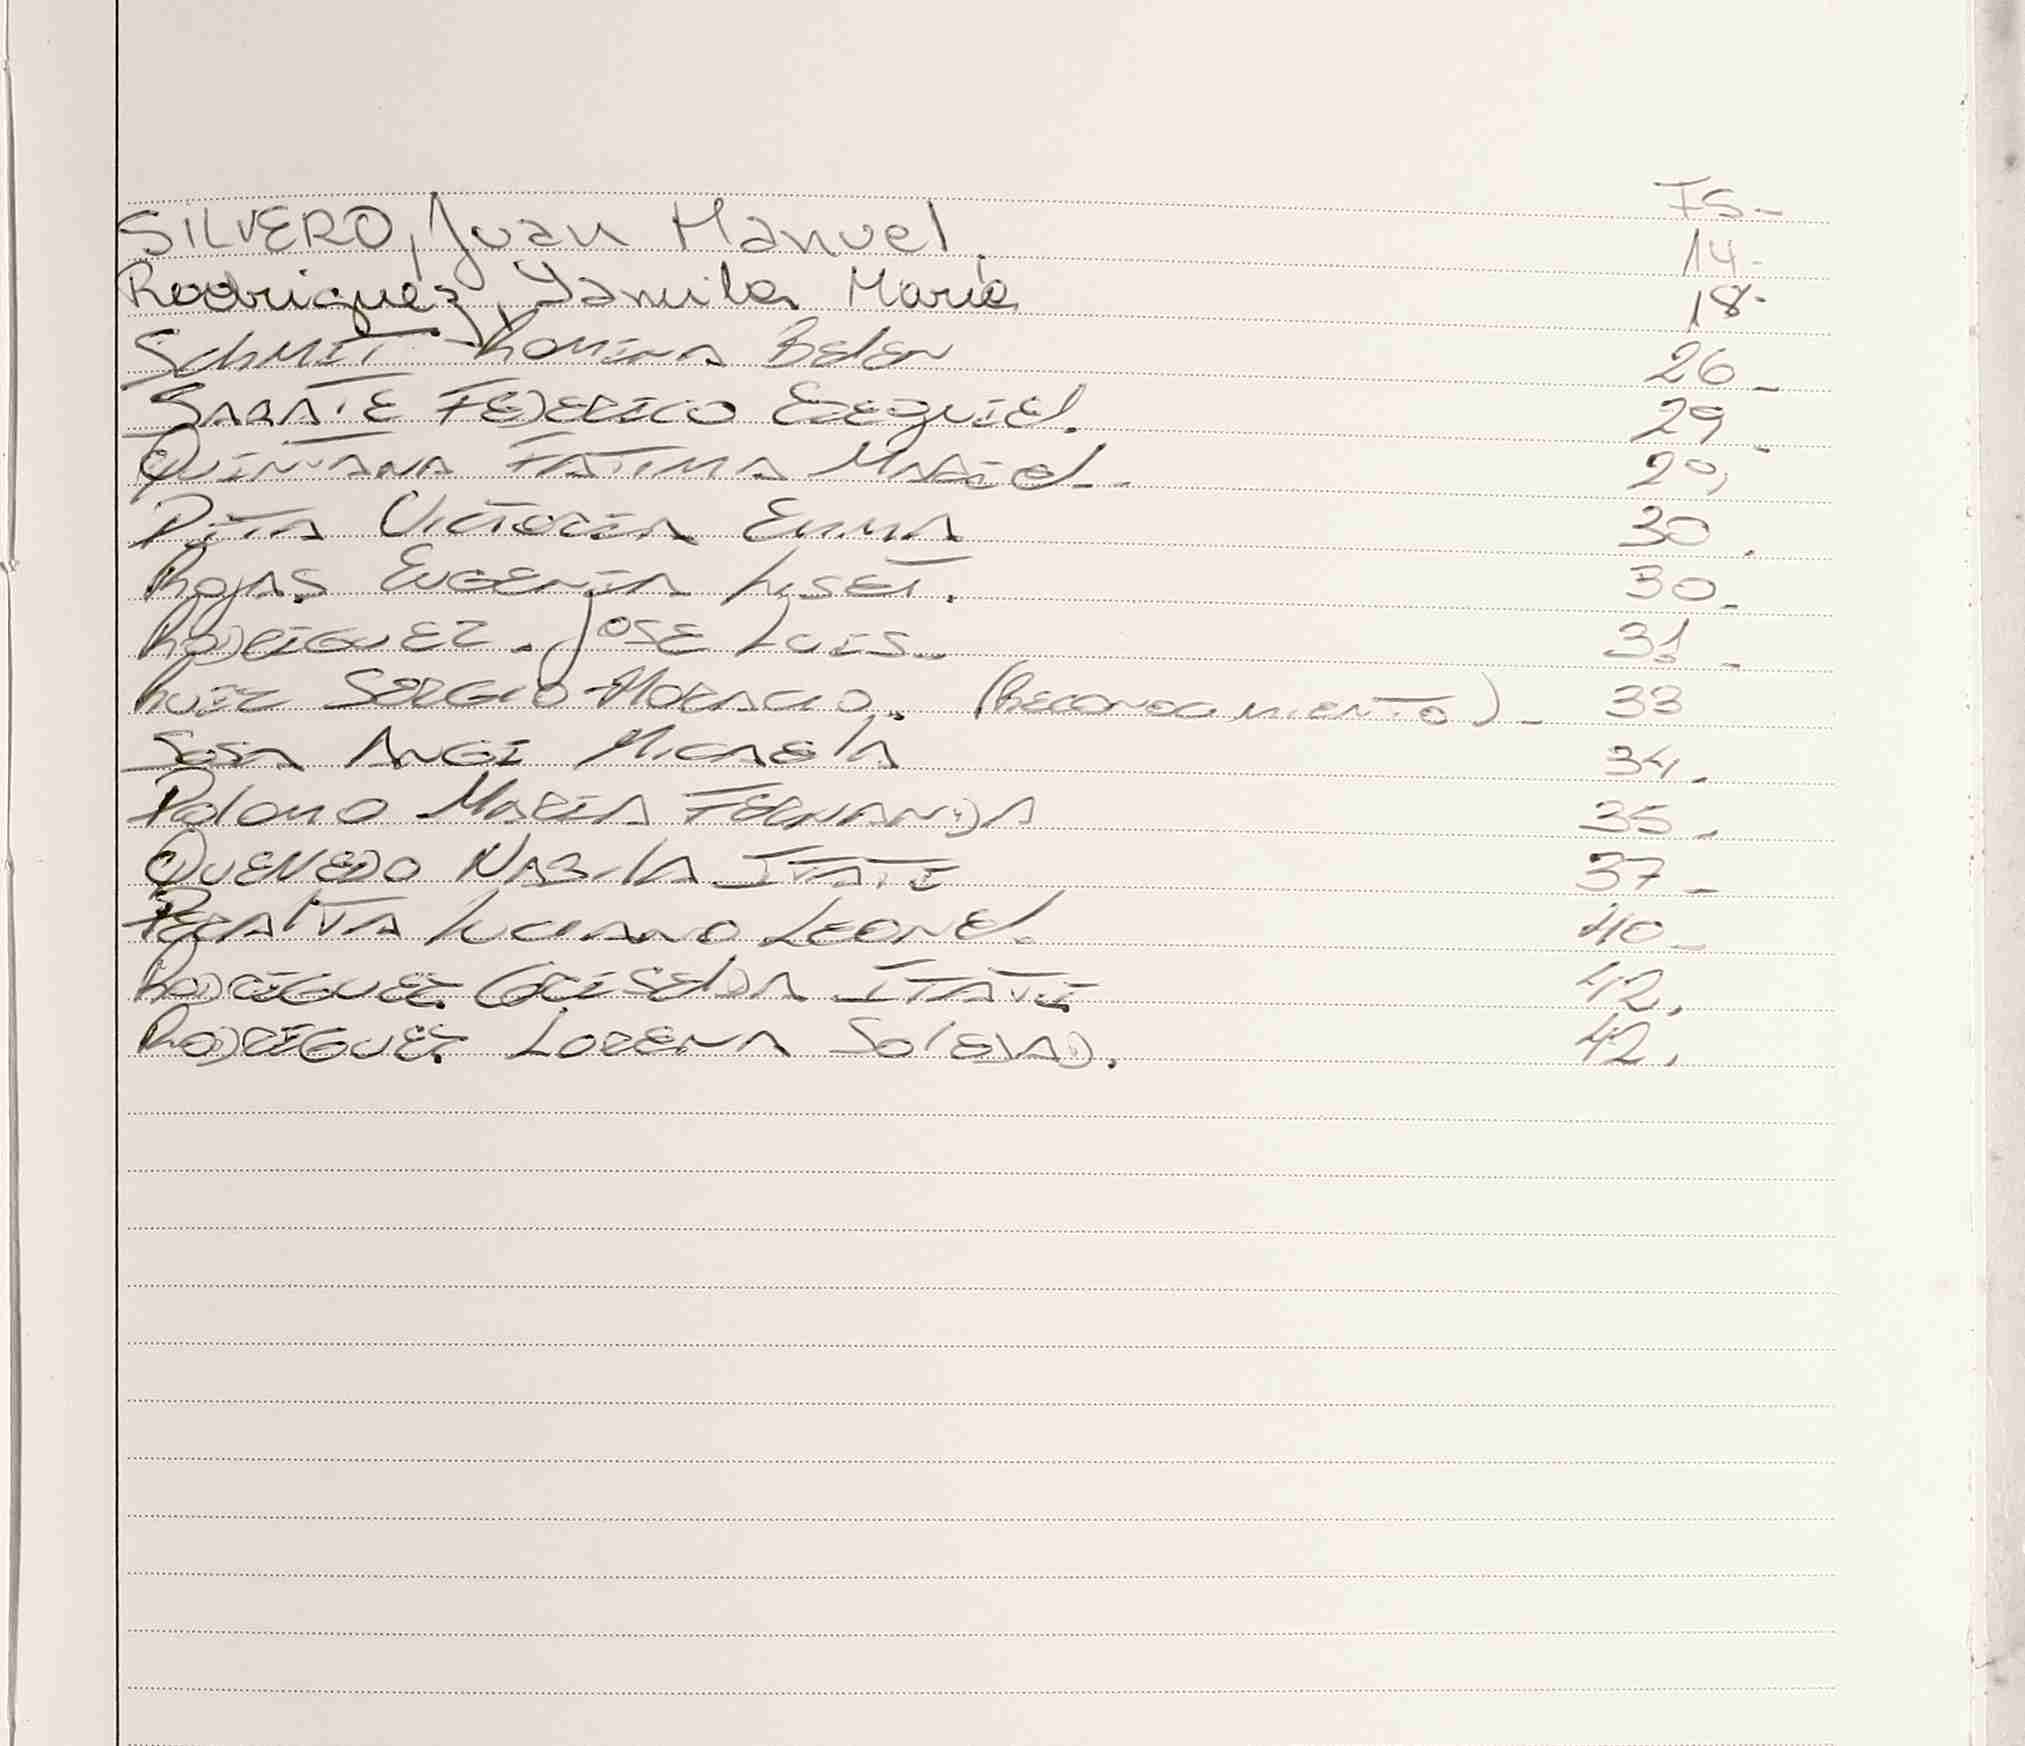 FS-
SILVERO, Juan Manuel. 14-
Rodriguez, Yamila María 18-
Schmit Romina Belen 26-
Sarate Federico Ezequiel. 29-
Quintana Fatima Mariel-- 29,
Pita Victoria Emma 30.
Rojas Eugenia Liset. 30-
Rodriguez. Jose Luis. 31-
Ruiz Sergio Horacio. (Reconocimiento)- 33
Sosa Angi Micaela 34.
Palomo Maria Fernanda 35-
Quevedo Nabila Itati 37-
Peralta Luciano Leonel. 40-
Rodriguez Griselda Itati 42.
Rodriguez Lorena Soledad. 42.